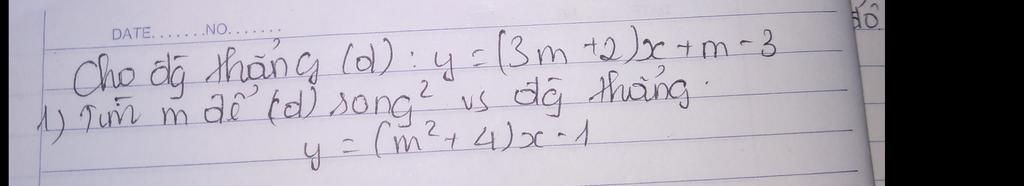 DATE.......NO.......
đồ
Cho đg thẳng (d) : y = (3m +2)x + m - 3
1) Tìm m để (d) song² vs đg thẳng.
y = (m² + 4)x - 1